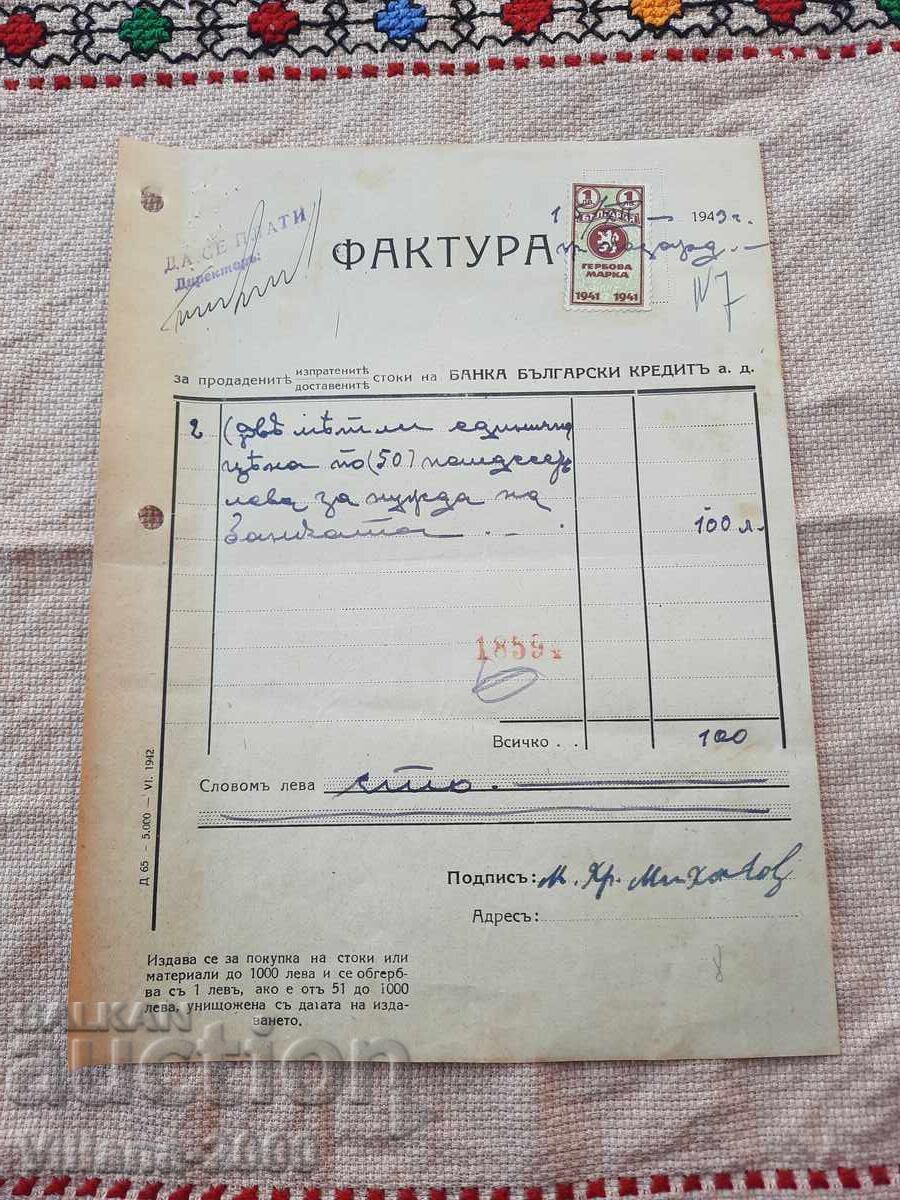 ДА СЕ ПЛАТИ
Директоръ:
ФАКТУРА
1 1
ГЕРБОВА
МАРКА
1941 1941
1943 г.
N 7
за продаденитѣ изпратенитѣ доставенитѣ стоки на БАНКА БЪЛГАРСКИ КРЕДИТЪ а. д.
2 (двѣ метли единична
цѣна по (50) петдесеть
лева за нужда на
банката 100 л.
1859
Всичко . . 100
Словомъ лева сто.
Подписъ: М. Хр. Михайлов
Адресъ:
Д. 65 — 5.000 — VI. 1942
Издава се за покупка на стоки или
материали до 1000 лева и се обгерб-
ва съ 1 левъ, ако е отъ 51 до 1000
лева, унищожена съ датата на изда-
ването.
BALKAN
auction
Villiana-2000